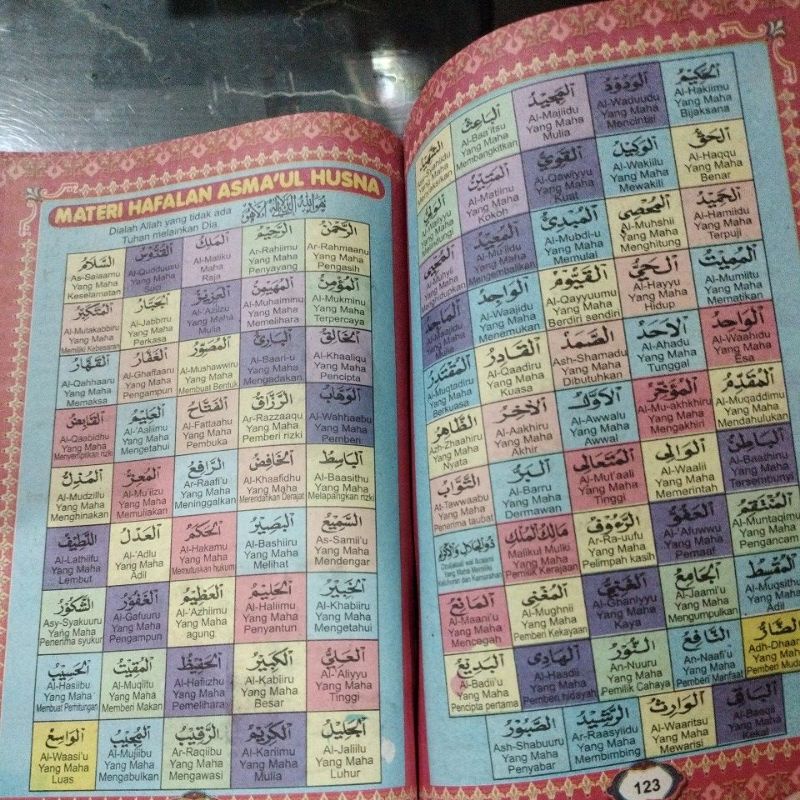 MATERI HAFALAN ASMA'UL HUSNA
Dialah Allah yang tidak ada
Tuhan melainkan Dia
الرَّحْمٰنُ
Ar-Rahmaanu
Yang Maha
Pengasih
الرَّحِيْمُ
Ar-Rahiimu
Yang Maha
Penyayang
المَلِكُ
Al-Maliku
Maha
Raja
القُدُّوْسُ
Al-Qudduusu
Yang Maha
Suci
السَّلَامُ
As-Salaamu
Yang Maha
Keselamatan
المُؤْمِنُ
Al-Mukminu
Yang Maha
Terpercaya
المُهَيْمِنُ
Al-Muhaiminu
Yang Maha
Memelihara
العَزِيْزُ
Al-'Aziizu
Yang Maha
Mulia
الجَبَّارُ
Al-Jabbrru
Yang Maha
Perkasa
المُتَكَبِّرُ
Al-Mutakabbiru
Yang Maha
Memiliki Kebesaran
الخَالِقُ
Al-Khaaliqu
Yang Maha
Pencipta
البَارِئُ
Al-Baari-u
Yang Maha
Mengadakan
المُصَوِّرُ
Al-Mushawwiru
Yang Maha
Membuat Bentuk
الغَفَّارُ
Al-Ghaffaaru
Yang Maha
Pengampun
القَهَّارُ
Al-Qahhaaru
Yang Maha
Memaksa
الوَهَّابُ
Al-Wahhaabu
Yang Maha
Pemberi
الرَّزَّاقُ
Ar-Razzaaqu
Yang Maha
Pemberi rizki
الفَتَّاحُ
Al-Fattaahu
Yang Maha
Pembuka
العَلِيْمُ
Al-'Aaliimu
Yang Maha
Mengetahui
القَابِضُ
Al-Qaabidhu
Yang Maha
Menyempitkan rizki
البَاسِطُ
Al-Baasithu
Yang Maha
Melapangkan rizki
الخَافِضُ
Al-Khaafidhu
Yang Maha
Merendahkan Derajat
الرَّافِعُ
Ar-Raafi'u
Yang Maha
Meninggalkan
المُعِزُّ
Al-Mu'iizu
Yang Maha
Memuliakan
المُذِلُّ
Al-Mudzillu
Yang Maha
Menghinakan
السَّمِيْعُ
As-Samii'u
Yang Maha
Mendengar
البَصِيْرُ
Al-Bashiiru
Yang Maha
Melihat
الحَكَمُ
Al-Hakamu
Yang Maha
Memutuskan hukum
العَدْلُ
Al-'Adlu
Yang Maha
Adil
اللَّطِيْفُ
Al-Lathiifu
Yang Maha
Lembut
الخَبِيْرُ
Al-Khabiiru
Yang Maha
Mengetahui
الحَلِيْمُ
Al-Haliimu
Yang Maha
Penyantun
العَظِيْمُ
Al-'Azhiimu
Yang Maha
agung
الغَفُوْرُ
Al-Gafuuru
Yang Maha
Pengampun
الشَّكُوْرُ
Asy-Syakuuru
Yang Maha
Penerima syukur
العَلِيُّ
Al-'Aliyyu
Yang Maha
Tinggi
الكَبِيْرُ
Al-Kabiiru
Yang Maha
Besar
الحَفِيْظُ
Al-Hafiizhu
Yang Maha
Pemelihara
المُقِيْتُ
Al-Muqiitu
Yang Maha
Memberi Makan
الحَسِيْبُ
Al-Hasiibu
Yang Maha
Membuat Perhitungan
الجَلِيْلُ
Al-Jaliilu
Yang Maha
Luhur
الكَرِيْمُ
Al-Kariimu
Yang Maha
Mulia
الرَّقِيْبُ
Ar-Raqiibu
Yang Maha
Mengawasi
المُجِيْبُ
Al-Mujiibu
Yang Maha
Mengabulkan
الوَاسِعُ
Al-Waasi'u
Yang Maha
Luas
الحَكِيْمُ
Al-Hakiimu
Yang Maha
Bijaksana
الوَدُوْدُ
Al-Waduudu
Yang Maha
Mencintai
المَجِيْدُ
Al-Majiidu
Yang Maha
Mulia
البَاعِثُ
Al-Baa'itsu
Yang Maha
Membangkitkan
الحَقُّ
Al-Haqqu
Yang Maha
Benar
الوَكِيْلُ
Al-Wakiilu
Yang Maha
Mewakili
القَوِيُّ
Al-Qawiyyu
Yang Maha
Kuat
المَتِيْنُ
Al-Matiinu
Yang Maha
Kokoh
الحَمِيْدُ
Al-Hamiidu
Yang Maha
Terpuji
المُحْصِى
Al-Muhshii
Yang Maha
Menghitung
المُبْدِئُ
Al-Mubdi-u
Yang Maha
Memulai
المُعِيْدُ
Al-Mu'iidu
Yang Maha
Mengembalikan
المُمِيْتُ
Al-Mumiitu
Yang Maha
Mematikan
الحَيُّ
Al-Hayyu
Yang Maha
Hidup
القَيُّوْمُ
Al-Qayyuumu
Yang Maha
Berdiri sendiri
الوَاجِدُ
Al-Waajidu
Yang Maha
Menemukan
المَاجِدُ
الوَاحِدُ
Al-Waahidu
Yang Maha
Esa
الاَحَدُ
Al-Ahadu
Yang Maha
Tunggal
الصَّمَدُ
Ash-Shamadu
Yang Maha
Dibutuhkan
القَادِرُ
Al-Qaadiru
Yang Maha
Kuasa
المُقْتَدِرُ
Al-Muqtadiru
Yang Maha
Berkuasa
المُقَدِّمُ
Al-Muqaddimu
Yang Maha
Mendahulukan
المُؤَخِّرُ
Al-Mu-akhkhiru
Yang Maha
Mengakhiri
الاَوَّلُ
Al-Awwalu
Yang Maha
Awwal
الآخِرُ
Al-Aakhiru
Yang Maha
Akhir
الظَّاهِرُ
Azh-Zhaahiru
Yang Maha
Nyata
البَاطِنُ
Al-Baathinu
Yang Maha
Tersembunyi
الوَالِى
Al-Waalii
Yang Maha
Memerintah
المُتَعَالِى
Al-Muta'aali
Yang Maha
Tinggi
البَرُّ
Al-Barru
Yang Maha
Dermawan
التَّوَّابُ
At-Tawwaabu
Yang Maha
Penerima taubat
المُنْتَقِمُ
Al-Muntaqimu
Yang Maha
Pengancam
العَفُوُّ
Al-'Afuwwu
Yang Maha
Pemaaf
الرَّءُوْفُ
Ar-Ra-uufu
Yang Maha
Pelimpah kasih
مَالِكُ المُلْكِ
Malikul Mulki
Yang Maha
Pemilik Kerajaan
ذُوالجَلَالِ وَالاِكْرَامِ
Yang Maha Memiliki
Keluhuran dan Kemurahan
المُقْسِطُ
Al-Muqsithu
Yang Maha
Adil
الجَامِعُ
Al-Jaami'u
Yang Maha
Mengumpulkan
الغَنِيُّ
Al-Ghaniyyu
Yang Maha
Kaya
المُغْنِى
Al-Mughnii
Yang Maha
Pemberi Kekayaan
المَانِعُ
Al-Maani'u
Yang Maha
Mencegah
الضَّارُّ
Yang Maha
النَّافِعُ
An-Naafi'u
Yang Maha
Pemberi Manfaat
النُّوْرُ
An-Nuuru
Yang Maha
Pemilik Cahaya
الهَادِى
Al-Haadii
Yang Maha
Pemberi hidayah
البَدِيْعُ
Al-Badii'u
Yang Maha
Pencipta pertama
البَاقِى
Al-Baaqii
Yang Maha
Kekal
الوَارِثُ
Al-Waaritsu
Yang Maha
Mewarisi
الرَّشِيْدُ
Ar-Raasyiidu
Yang Maha
Membimbing
الصَّبُوْرُ
Ash-Shabuuru
Yang Maha
Penyabar
123